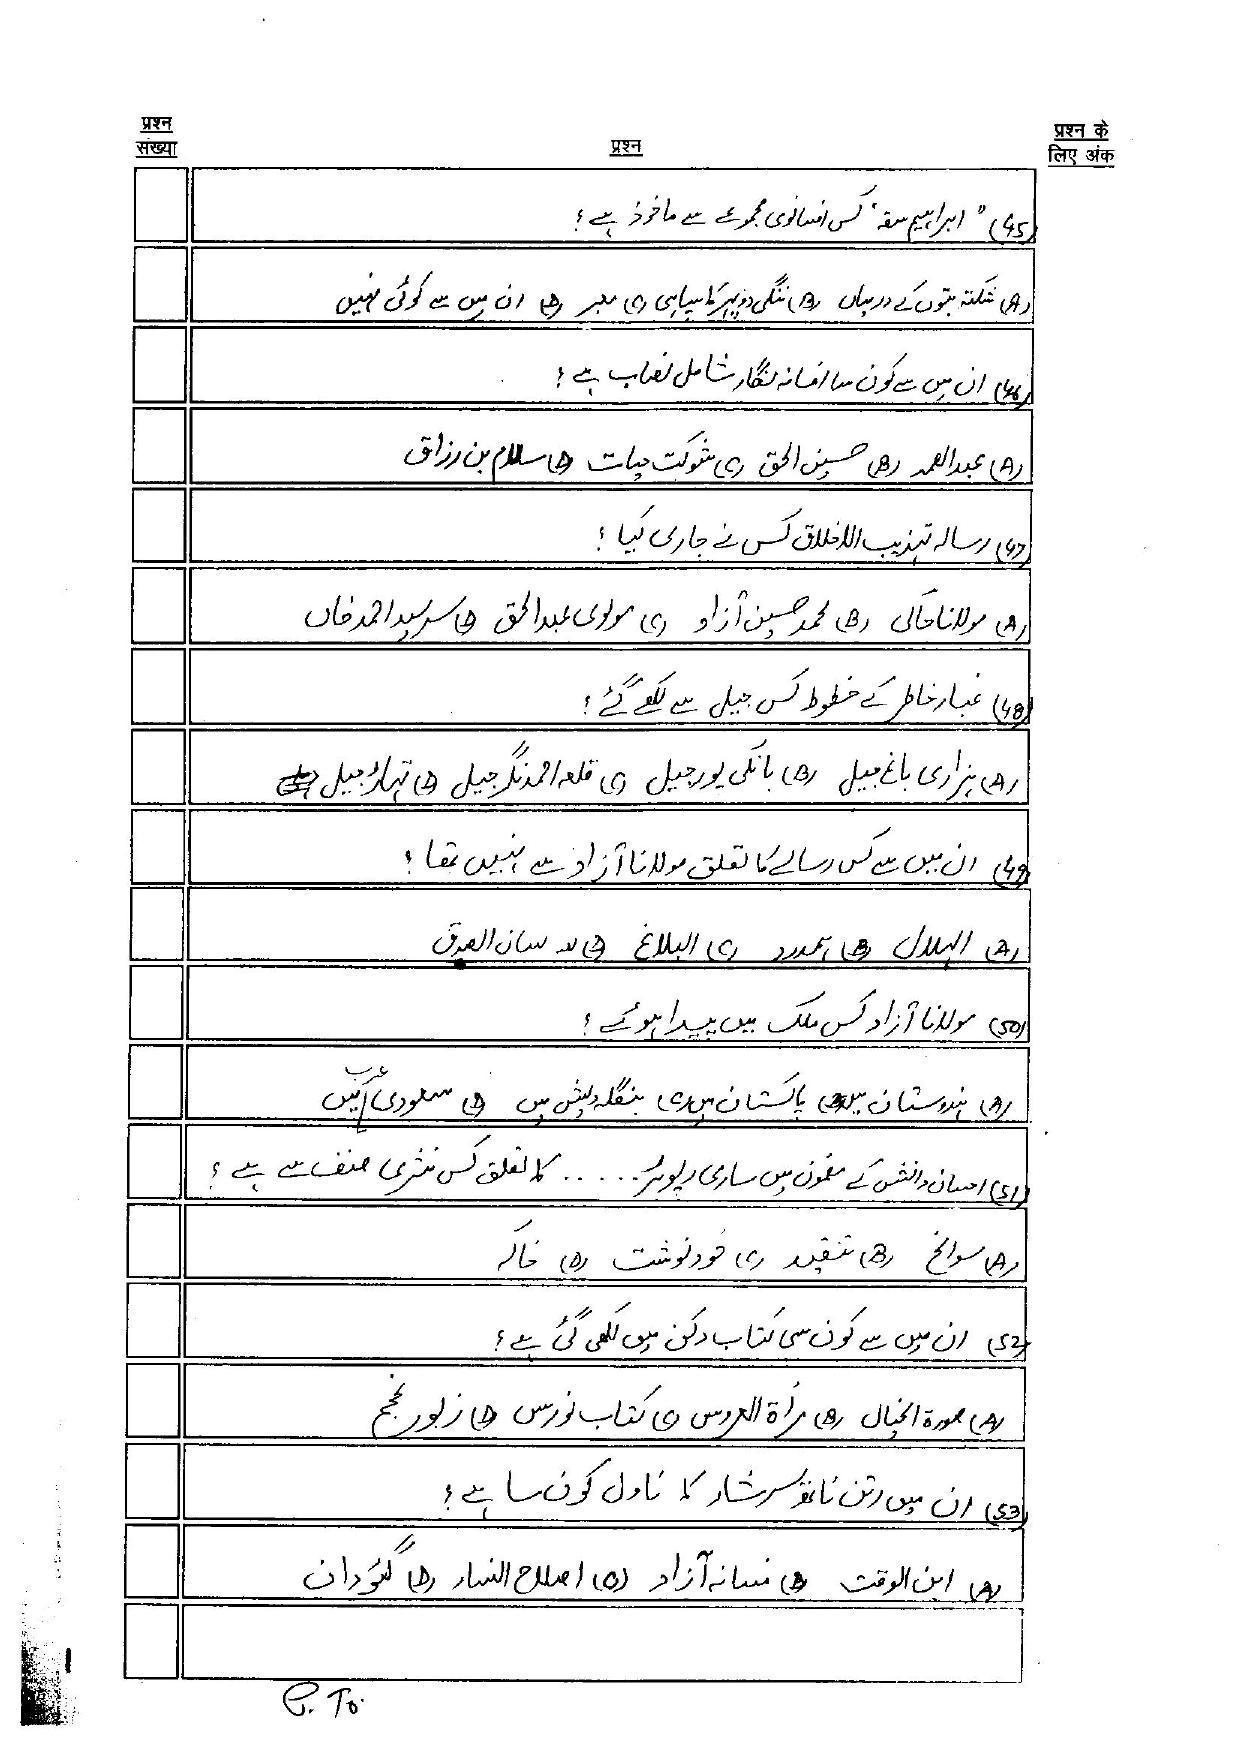 प्रश्न संख्या
प्रश्न
प्रश्न के लिए अंक
(45) "ابراہیم سقہ" کس افسانوی مجموعے سے ماخوذ ہے؟
(A) شکستہ بتوں کے درمیاں (B) ننگی دوپہر کا سپاہی (C) معبر (D) ان میں سے کوئی نہیں
(46) ان میں سے کون سا افسانہ نگار شامل نصاب ہے؟
(A) عبدالصمد (B) حسین الحق (C) شوکت حیات (D) سلام بن رزاق
(47) رسالہ تہذیب الاخلاق کس نے جاری کیا؟
(A) مولانا حالی (B) محمد حسین آزاد (C) مولوی عبدالحق (D) سرسید احمد خاں
(48) غبار خاطر کے خطوط کس جیل سے لکھے گئے؟
(A) ہزاری باغ جیل (B) بانکی پور جیل (C) قلعہ احمد نگر جیل (D) تہاڑ جیل
(49) ان میں سے کس رسالے کا تعلق مولانا آزاد سے نہیں تھا؟
(A) الہلال (B) ہمدرد (C) البلاغ (D) لسان الصدق
(50) مولانا آزاد کس ملک میں پیدا ہوئے؟
(A) ہندوستان میں (B) پاکستان میں (C) بنگلہ دیش میں (D) سعودی عرب میں
(51) احسان دانش کے مضمون میں ساری رپورٹر ..... کا تعلق کس نثری صنف سے ہے؟
(A) سوانح (B) تنقید (C) خودنوشت (D) خاکہ
(52) ان میں سے کون سی کتاب دکن میں لکھی گئی ہے؟
(A) صورۃ الخیال (B) مرأۃ العروس (C) کتاب نورس (D) زبور عجم
(53) ان میں رتن ناتھ سرشار کا ناول کون سا ہے؟
(A) ابن الوقت (B) فسانہ آزاد (C) اصلاح النساء (D) گئودان
P. To.